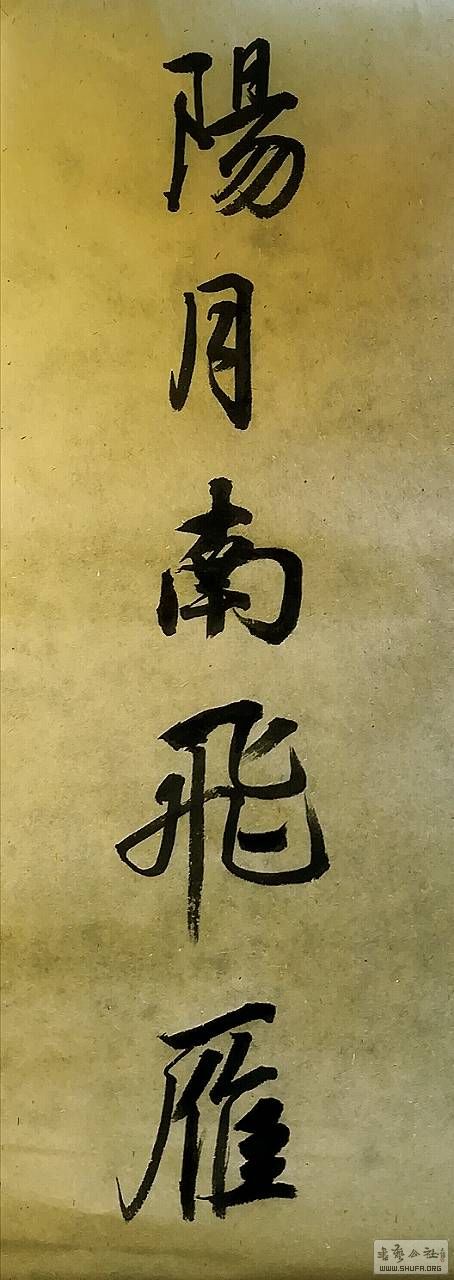 陽月南飛雁
WWW.SHUFA.ORG